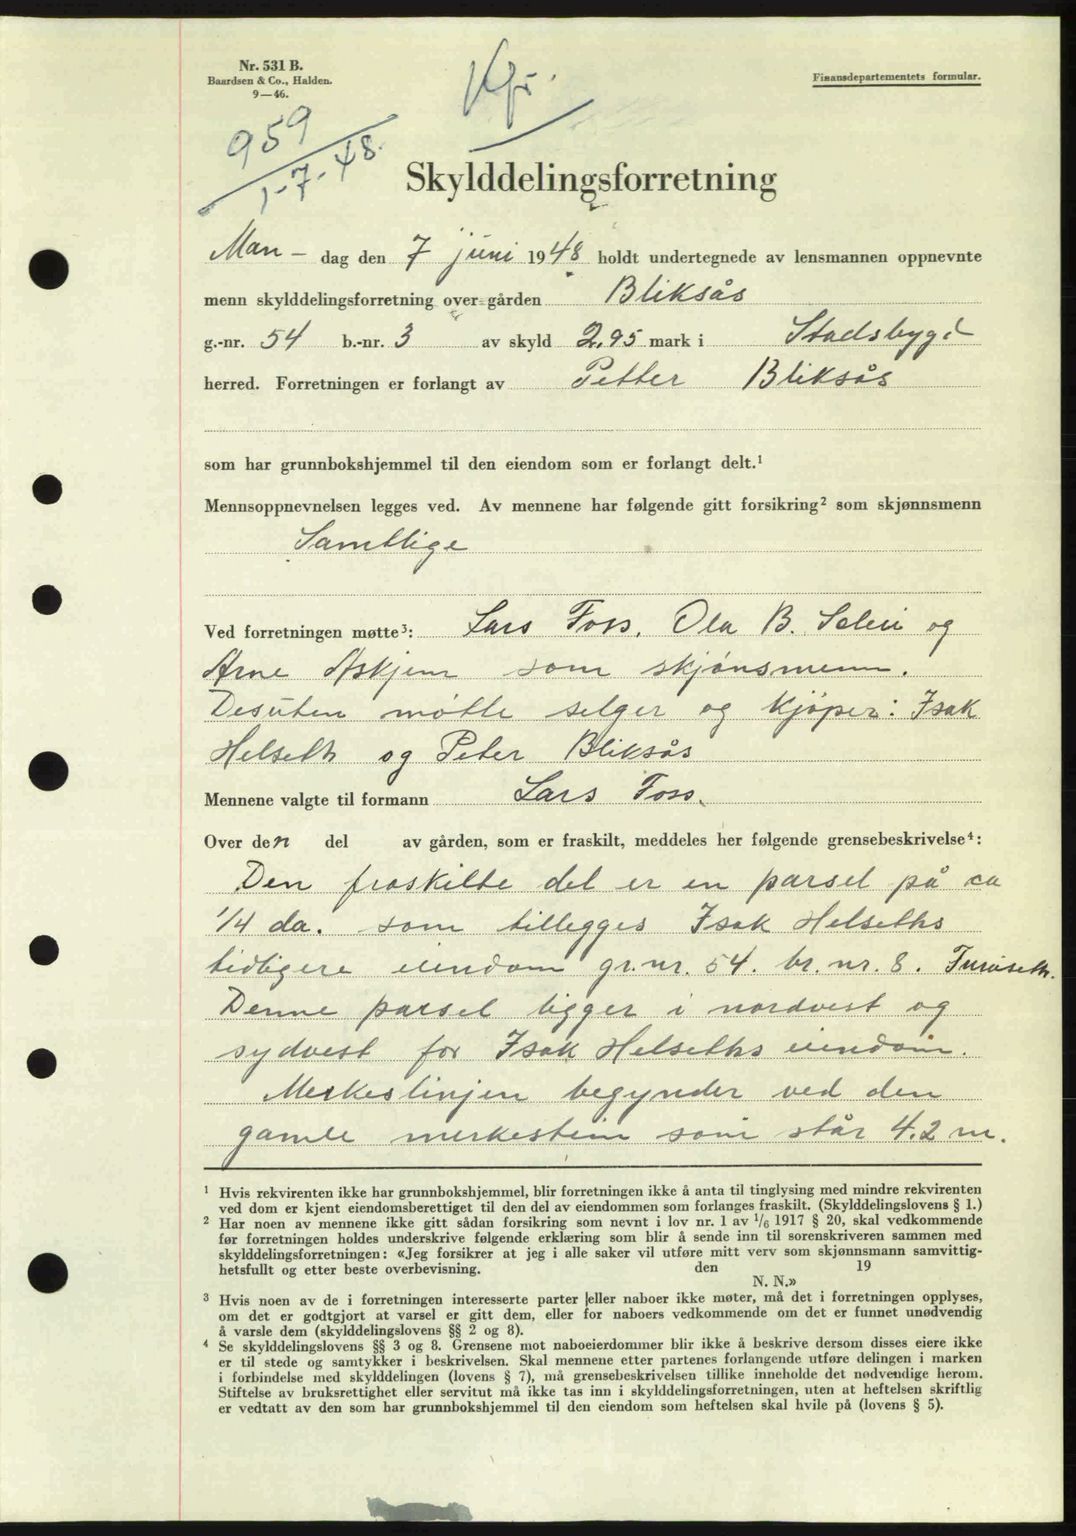 Nr. 531 B.
Baardsen & Co., Halden.
9—46.
Finansdepartementets formular.
Kfr.
959
1-7-48.
Skylddelingsforretning
Man- dag den 7 juni 1948 holdt undertegnede av lensmannen oppnevnte
menn skylddelingsforretning over gården Bliksås
g.-nr. 54 b.-nr. 3 av skyld 2,95 mark i Stadsbygd
herred. Forretningen er forlangt av Petter Bliksås
som har grunnbokshjemmel til den eiendom som er forlangt delt.¹
Mennsoppnevnelsen legges ved. Av mennene har følgende gitt forsikring² som skjønnsmenn
Samtlige
Ved forretningen møtte³: Lars Foss, Ola B. og
Arne Askjem som skjönsmenn.
Desuten møtte selger og kjöper: Isak
Helseth og Peter Bliksås
Mennene valgte til formann Lars Foss.
Over den del av gården, som er fraskilt, meddeles her følgende grensebeskrivelse⁴:
Den fraskilte del er en parsel på ca
1/4 da. som tillegges Isak Helseths
tidligere eiendom gr.nr. 54. br.nr. 8.
Denne parsel ligger i nordvest og
sydvest for Isak Helseths eiendom.
Merkeslinjen begynder ved den
gamle merkestein som står 4.2 m.
¹ Hvis rekvirenten ikke har grunnbokshjemmel, blir forretningen ikke å anta til tinglysing med mindre rekvirenten
ved dom er kjent eiendomsberettiget til den del av eiendommen som forlanges fraskilt. (Skylddelingslovens § 1.)
² Har noen av mennene ikke gitt sådan forsikring som nevnt i lov nr. 1 av 1/6 1917 § 20, skal vedkommende
før forretningen holdes underskrive følgende erklæring som blir å sende inn til sorenskriveren sammen med
skylddelingsforretningen: «Jeg forsikrer at jeg i alle saker vil utføre mitt verv som skjønnsmann samvittig-
hetsfullt og etter beste overbevisning. den 19
N. N.»
³ Hvis noen av de i forretningen interesserte parter eller naboer ikke møter, må det i forretningen opplyses,
om det er godtgjort at varsel er gitt dem, eller for naboers vedkommende om det er funnet unødvendig
å varsle dem (skylddelingslovens §§ 2 og 8).
⁴ Se skylddelingslovens §§ 3 og 8. Grensene mot naboeierdommer blir ikke å beskrive dersom disses eiere ikke
er til stede og samtykker i beskrivelsen. Skal mennene etter partenes forlangende utføre delingen i marken
i forbindelse med skylddelingen (lovens § 7), må grensebeskrivelsen tillike inneholde det nødvendige herom.
Stiftelse av bruksrettighet eller servitut må ikke tas inn i skylddelingsforretningen, uten at heftelsen skriftlig
er vedtatt av den som har grunnbokshjemmel til den eiendom som heftelsen skal hvile på (lovens § 5).